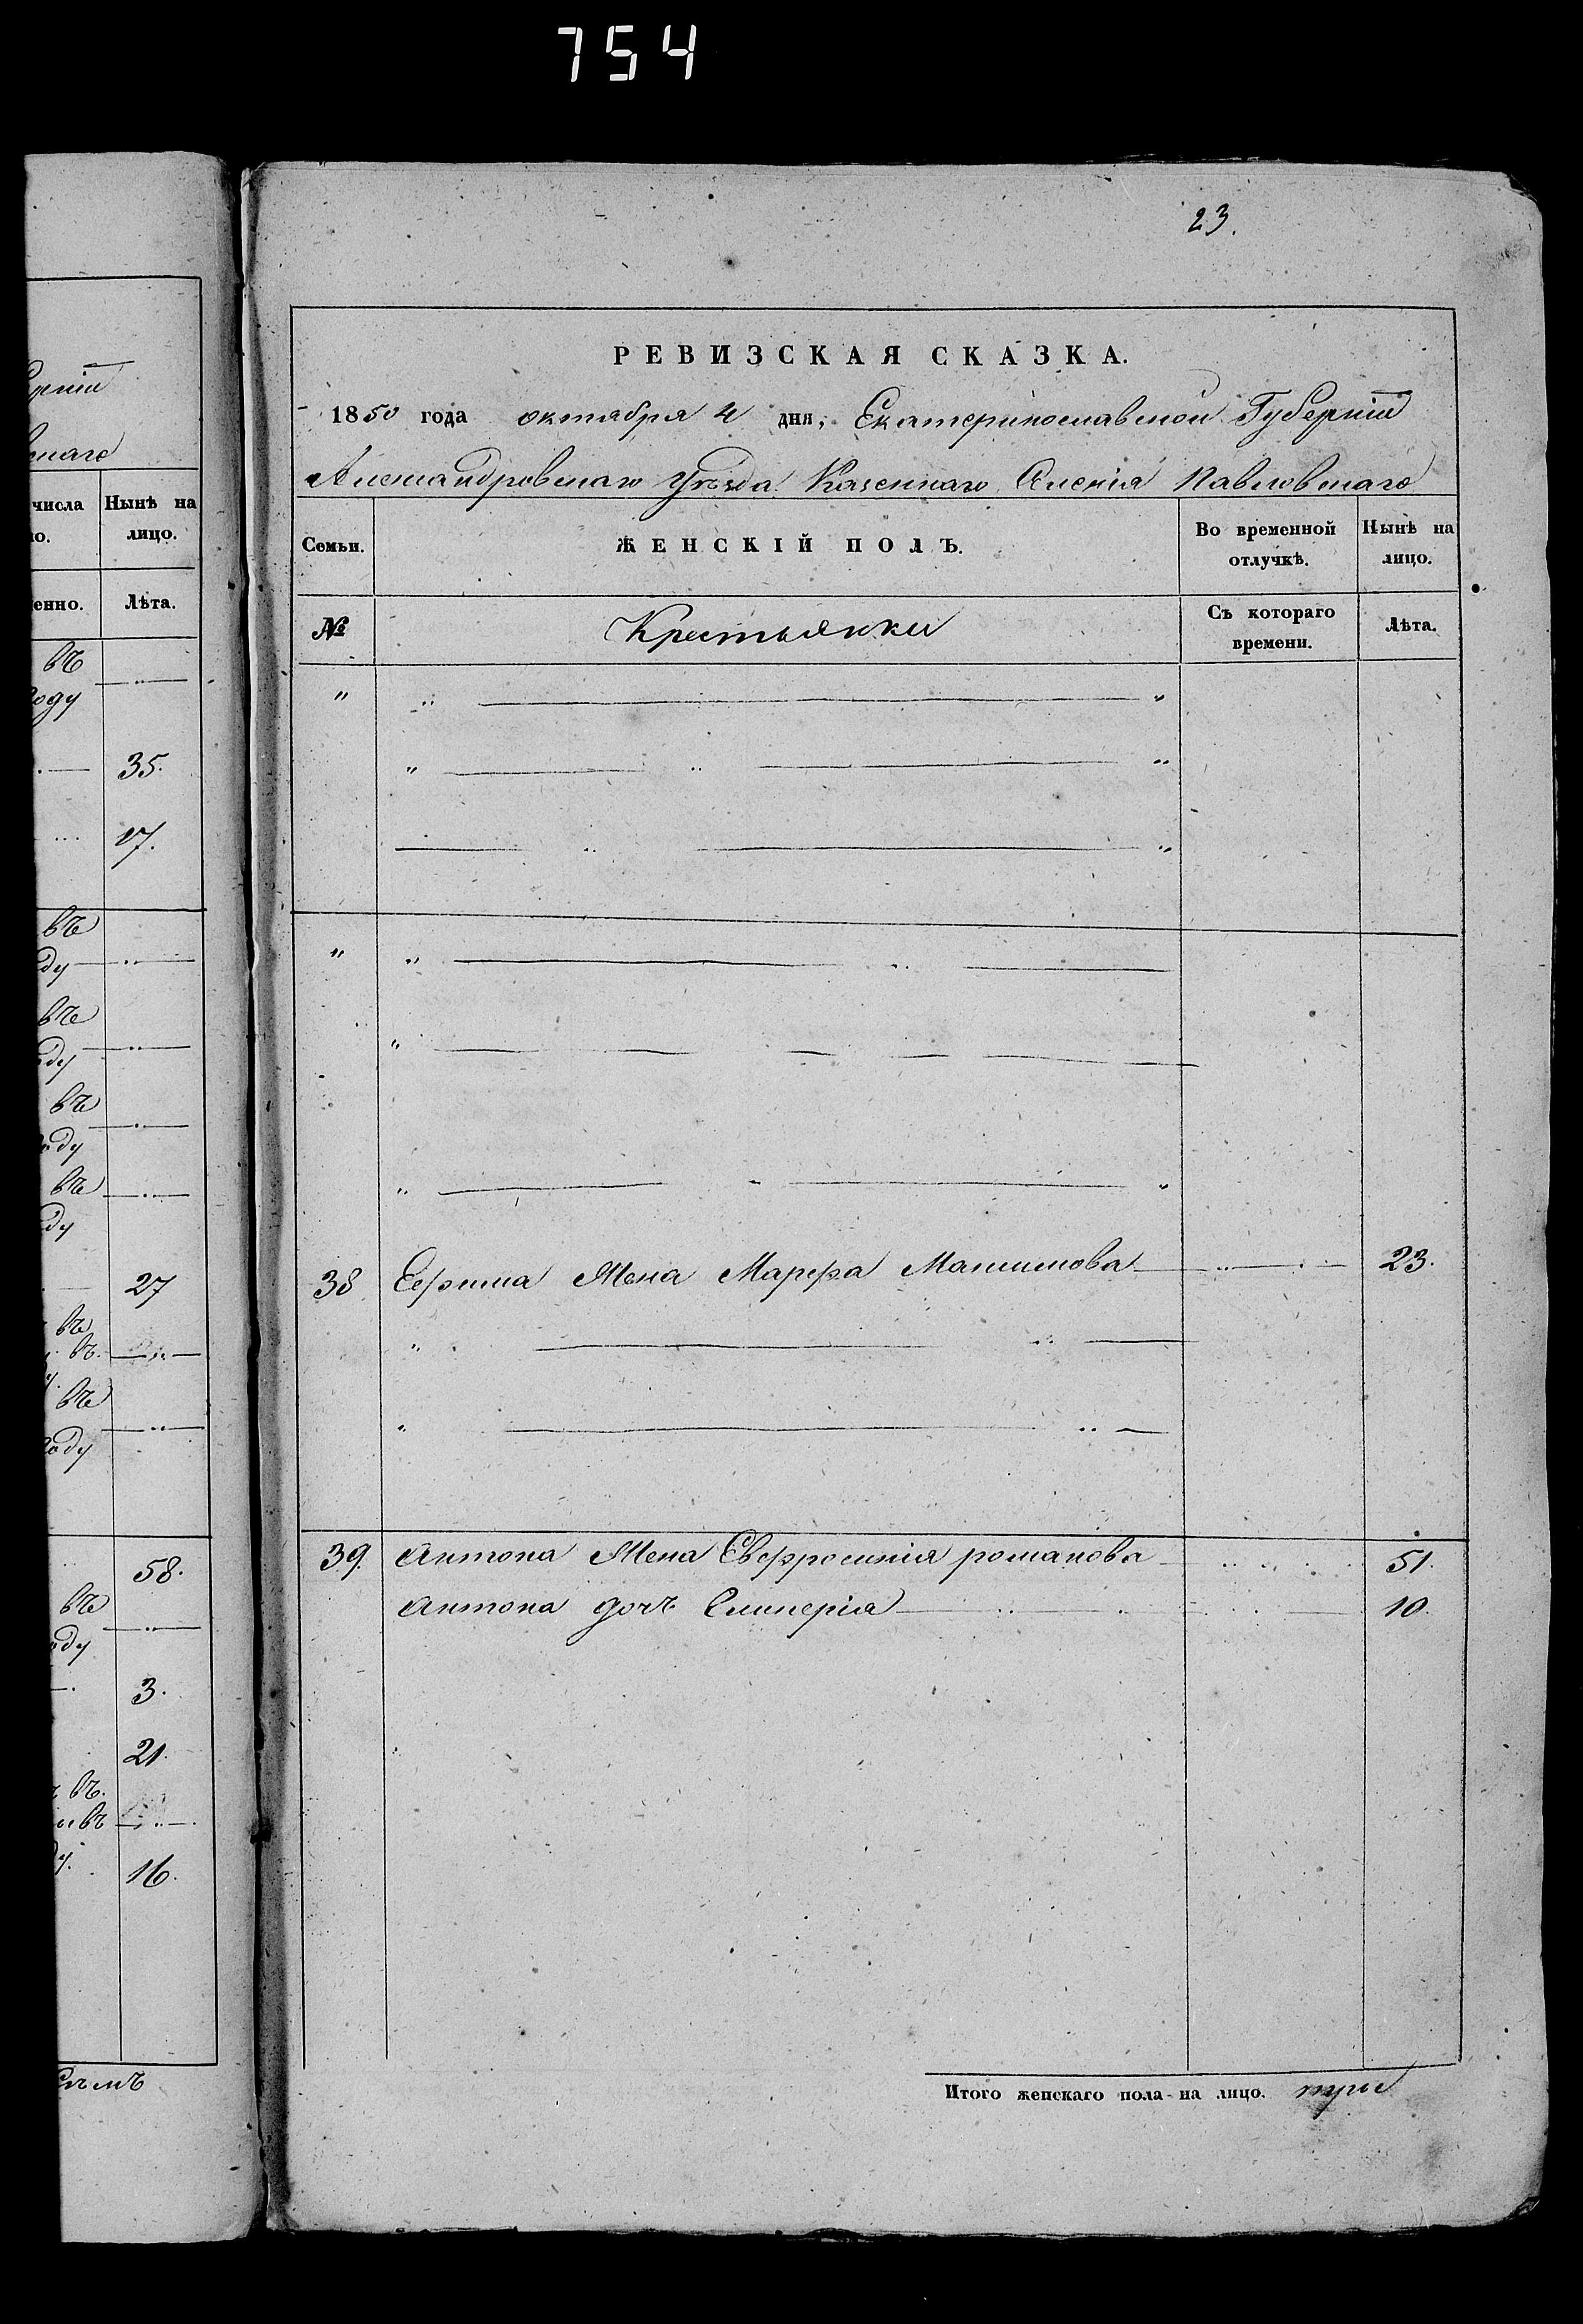 754
ерніи
скаго
числа Нынѣ на
но. лицо.
енно. Лѣта.
въ
году
35.
17.
въ
ду
въ
оду
въ
оду
въ
ду
27
въ
въ.
въ
году
58.
въ
оду
3.
21.
въ.
въ
16.
23.
РЕВИЗСКАЯ СКАЗКА.
1850 года октября 4 дня, Екатеринославской Губерніи
Александровскаго Уѣзда Казеннаго Селенія Павловскаго
Семьи. ЖЕНСКІЙ ПОЛЪ. Во временной отлучкѣ. Нынѣ на лицо.
№ Крестьянки Съ котораго времени. Лѣта.
38 Ефима Жена Марфа Максимова 23.
39. Антона Жена Евфросинія романова 51.
Антона дочь Гликерія 10.
Итого женскаго пола на лицо. три